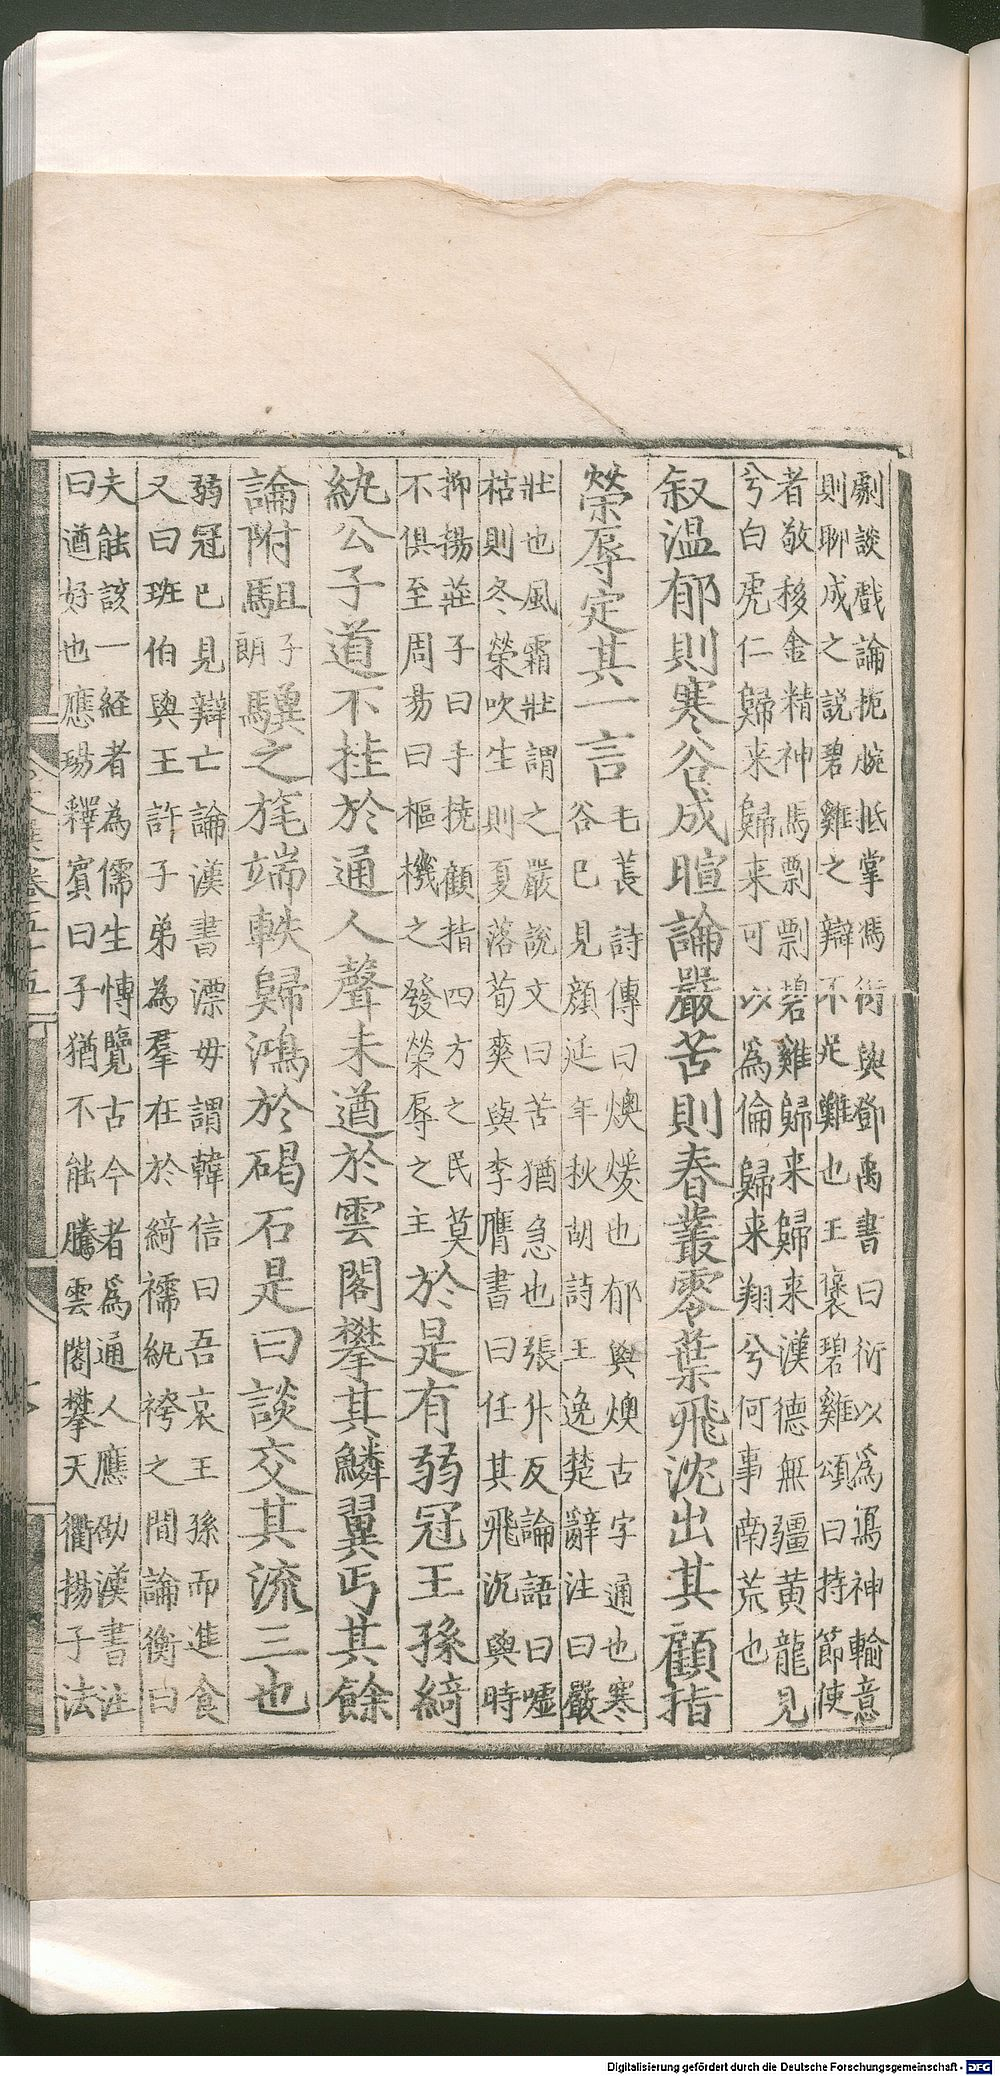 劇談戲論扼腕抵掌馮衍與鄧禹書曰衍以為寫神輸意
則聊成之說碧雞之辯不足難也王褒碧雞頌曰持節使
者敬移金精神馬剽剽碧雞歸来歸来漢德無疆黄龍見
兮白虎仁歸来歸来可以為倫歸来翔兮何事南荒也
叙温郁則寒谷成暄論嚴苦則春叢零葉飛沈出其顧指
榮辱定其一言
毛萇詩傳曰燠煖也郁與燠古字通也寒
谷已見顔延年秋胡詩王逸楚辭注曰嚴
壯也風霜壯謂之嚴說文曰苦猶急也張升反論語曰嘘
枯則冬榮吹生則夏落荀爽與李膺書曰任其飛沉與時
抑揚莊子曰手撓顧指四方之民莫
不俱至周易曰樞機之發榮辱之主
於是有弱冠王孫綺
紈公子道不挂於通人聲未遒於雲閣攀其鱗翼丐其餘
論附駔
子
朗
驥之旄端軼歸鴻於碣石是曰談交其流三也
弱冠已見辯亡論漢書漂母謂韓信曰吾哀王孫而進食
又曰班伯與王許子弟為羣在於綺襦紈袴之間論衡曰
夫能該一経者為儒生愽覽古今者為通人應劭漢書注
曰遒好也應瑒釋賓曰子猶不能騰雲閣攀天衢揚子法
文選卷五十五